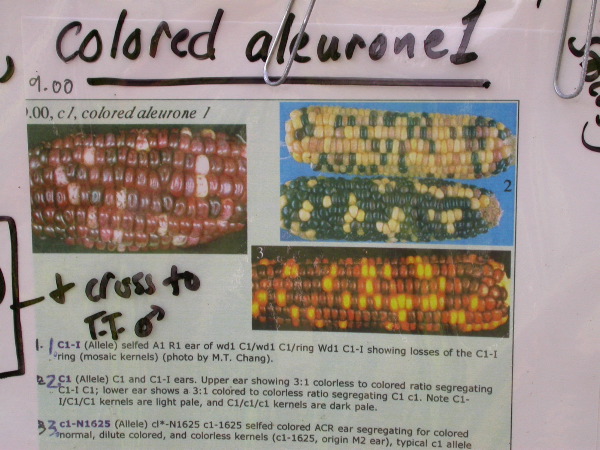 colored aleurone1
9.00
.00, c1, colored aleurone 1
2
3
+ cross to
T.T. ♂
1. 1 C1-I (Allele) selfed A1 R1 ear of wd1 C1/wd1 C1/ring Wd1 C1-I showing losses of the C1-I
ring (mosaic kernels) (photo by M.T. Chang).
2 2 C1 (Allele) C1 and C1-I ears. Upper ear showing 3:1 colorless to colored ratio segregating
C1-I C1; lower ear shows a 3:1 colored to colorless ratio segregating C1 c1. Note C1-
I/C1/C1 kernels are light pale, and C1/c1/c1 kernels are dark pale.
3 3 c1-N1625 (Allele) cl*-N1625 c1-1625 selfed colored ACR ear segregating for colored
normal, dilute colored, and colorless kernels (c1-1625, origin M2 ear), typical c1 allele